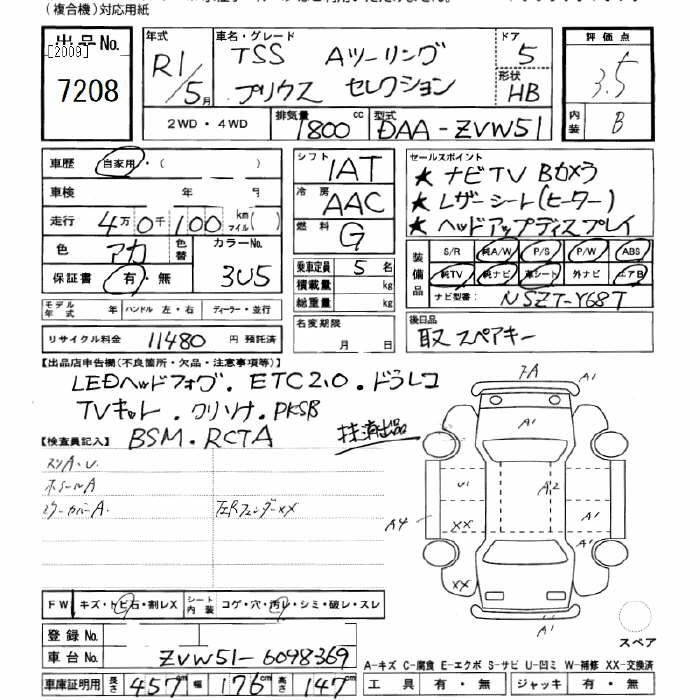 (複合機)対応用紙
出品No.
[2009]
7208
年式
R1/5月
車名・グレード
TSS Aツーリング
プリウス セレクション
ドア
5
形状
HB
評価点
3.5
内装
B
2WD・4WD
排気量
1800cc
型式
DAA-ZVW51
車歴 自家用・(
車検 年 月
走行 4万0千100 km マイル( )
色 アカ 色替 カラーNo. 3U5
保証書 有・無
シフト 1AT
冷房 AAC
燃料 G
乗車定員 5名
積載量 kg
総重量 kg
セールスポイント
★ ナビTV Bカメラ
★ レザーシート(ヒーター)
★ ヘッドアップディスプレイ
装備品
S/R 純A/W P/S P/W ABS
純TV 純ナビ 革シート 外ナビ エアB
ナビ型番: NSZT-Y68T
モデル年式 年 ハンドル 左・右 ディーラー・並行
リサイクル料金 11480 円 預託済
名変期限
月 日
後日品
取ス スペアキー
【出品店申告欄(不良箇所・欠品・注意事項等)】
LEDヘッドフォグ. ETC2.0. ドラレコ
TVキット. クリソナ. PKSB
BSM. RCTA
【検査員記入】
スリA・U.
ホイールA
ミラーカバーA.
左Rフェンダーxx
7A
A1
A1
U1
A2
A1
A4
XX
A1
XX
FW キズ・トビ石・割レX シート内装 コゲ・穴・汚レ・シミ・破レ・スレ
登録No.
車台No. ZVW51-6098369
車庫証明用 長さ 457cm 幅 176cm 高さ 147cm
スペア
A-キズ C-腐食 E-エクボ S-サビ U-凹ミ W-補修 XX-交換済
工具 有・無 ジャッキ 有・無